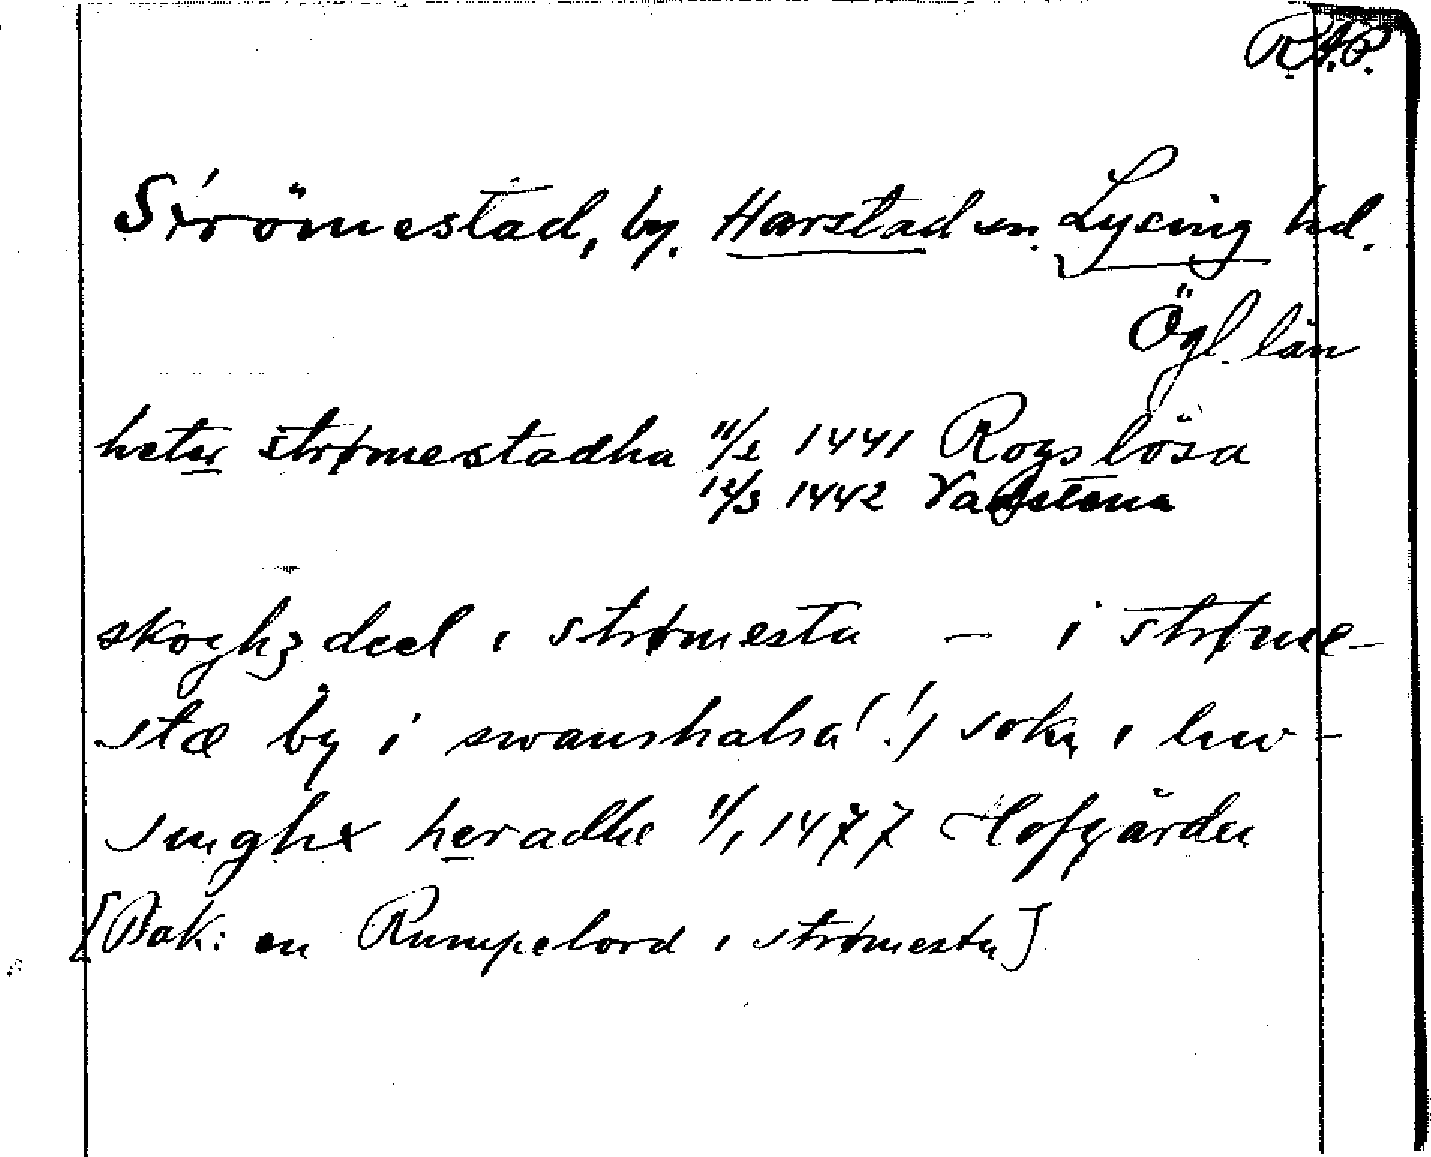 R.A.P.
Strömestad, by. Harstad sn. Lysing hd.
Ögl. län
heter strømestadha 11/2 1441 Rogslösa
12/3 1442 Vadstena
skoghz deel i strømesta – i strøme-
stæ by i swanshalsa (!) sokn i liw-
singhx heradhe 1/1 1477 Hofgården
[Bak: en Rumpelord i strømesta]